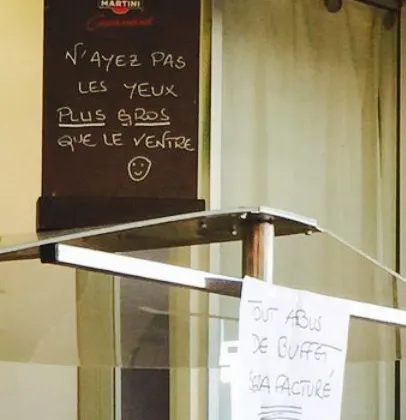 MARTINI
Gourmand
N'AYEZ PAS
LES YEUX
PLUS GROS
QUE LE VENTRE
TOUT ABUS
DE BUFFET
SERA FACTURÉ